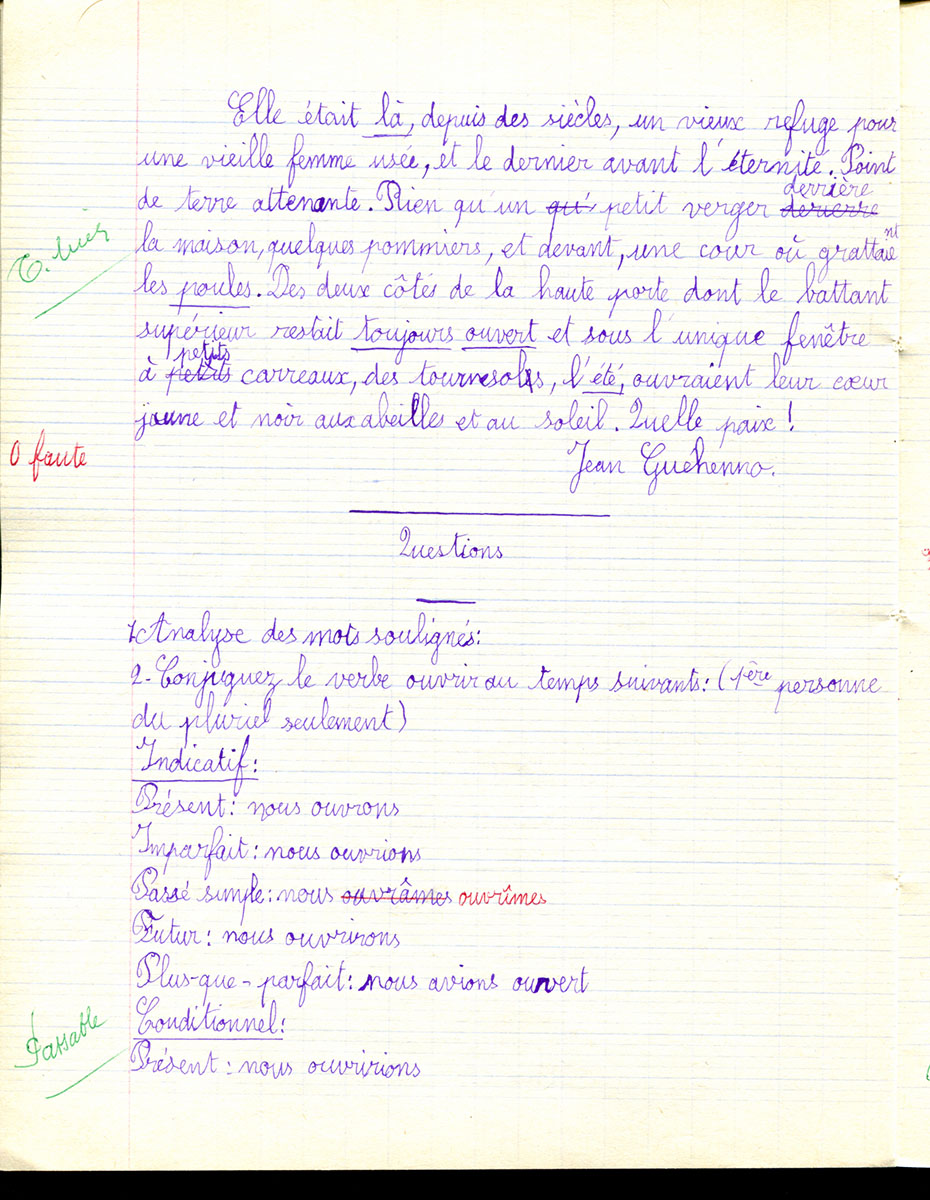 Elle était là, depuis des siècles, un vieux refuge pour
une vieille femme usée, et le dernier avant l'éternité. Point
derrière
de terre attenante. Rien qu'un qu' petit verger
T. bien
la maison, quelques pommiers, et devant, une cour où grattaient
les poules. Des deux côtés de la haute porte dont le battant
supérieur restait toujours ouvert et sous l'unique fenêtre
petits
à petits carreaux, des tournesols, l'été, ouvraient leur cœur
jaune et noir aux abeilles et au soleil. Quelle paix !
0 faute
Jean Guéhenno.
Questions
1. Analyse des mots soulignés:
2- Conjuguez le verbe ouvrir au temps suivants: (1ère personne
du pluriel seulement)
Indicatif:
Présent: nous ouvrons
Imparfait: nous ouvrions
Passé simple: nous ouvrâmes ouvrîmes
Futur: nous ouvrirons
Plus-que-parfait: nous avions ouvert
Conditionnel:
Passable
Présent: nous ouvririons